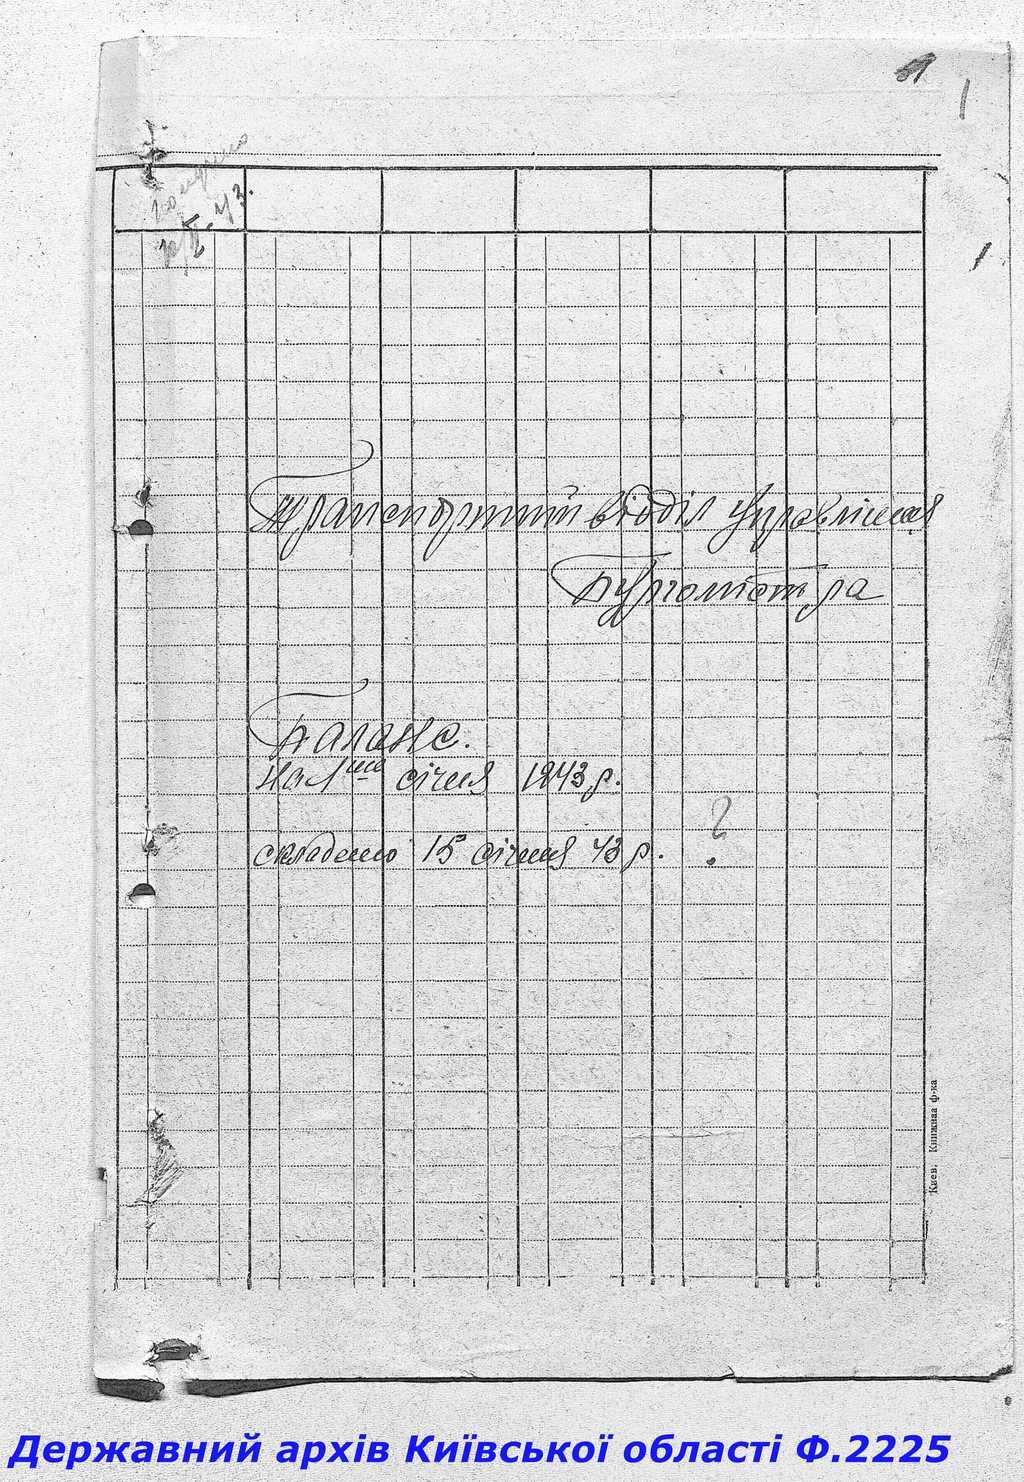 1
1
1
Транспортний відділ управління
Бургомістра
Баланс.
на 1ше січня 1943 р.
складено 15 січня 43 р. ?
Киев. Книжная ф-ка
Державний архів Київської області Ф.2225